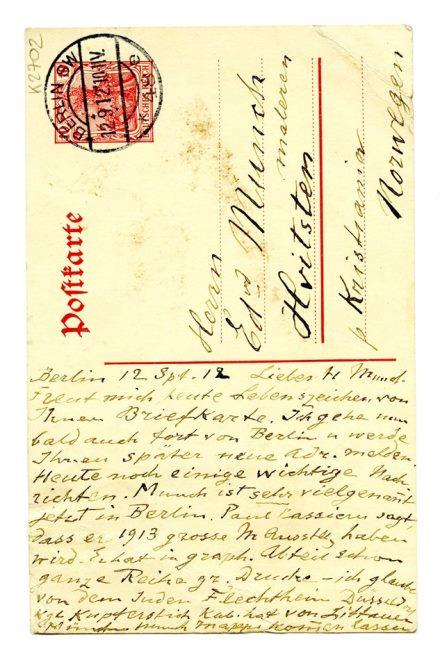 K2702
BERLIN SW
12.9.12.10-11V.
DEUTSCHES REICH
Postkarte
Herrn
Edv Munch
maleren
Hvitsten
p Kristiania
Norwegen
Berlin 12 Spt. 12 Lieber H Munch
Freut mich heute Lebenszeichen von
Ihnen Briefkarte. Ich gehe nun
bald auch fort von Berlin u werde
Ihnen später neue adr. melden.
Heute noch einige wichtige Nach
richten. Munch ist sehr vielgenannt
jetzt in Berlin. Paul Cassierer sagt
dass er 1913 grosse M Ausstlg haben
wird. Er hat in graph. Abteil schon
ganze Reihe gr. Drucke – ich glaube
von dem Juden Flechtheim Düsseldf
Kgl Kupferstich Kab. hat von Littauer
München Munch mappe kommen lassen